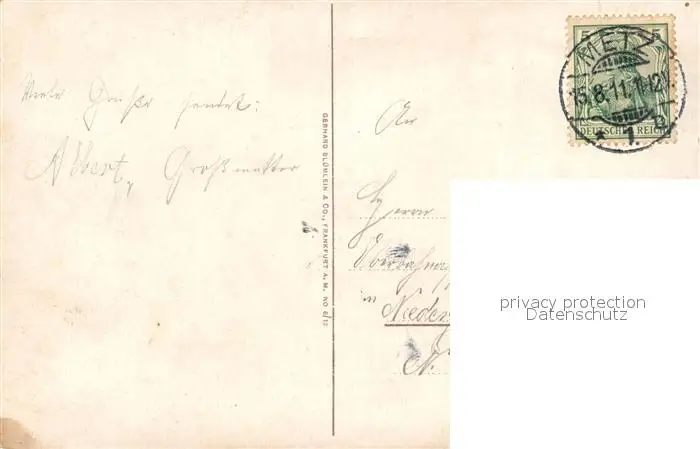 Viele Grüße sendet:
Albert, Großmutter
GERHARD BLÜMLEIN & CO., FRANKFURT A. M. NO 8/12
5 5
METZ
15.8.11.1-12
* 1.
DEUTSCHES REICH
An
Herrn
in
Nieder
privacy protection
Datenschutz